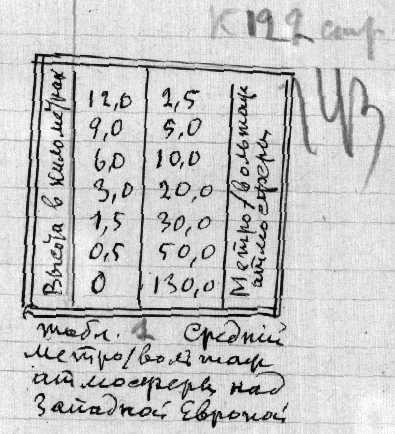 К 122 стр
Высота в километрах
12,0 2,5
9,0 5,0
6,0 10,0
3,0 20,0
1,5 30,0
0,5 50,0
0 130,0
Метро/вольтаж
атмосферы
табл. 1 Средний
метро/вольтаж
атмосферы над
Западной Европой